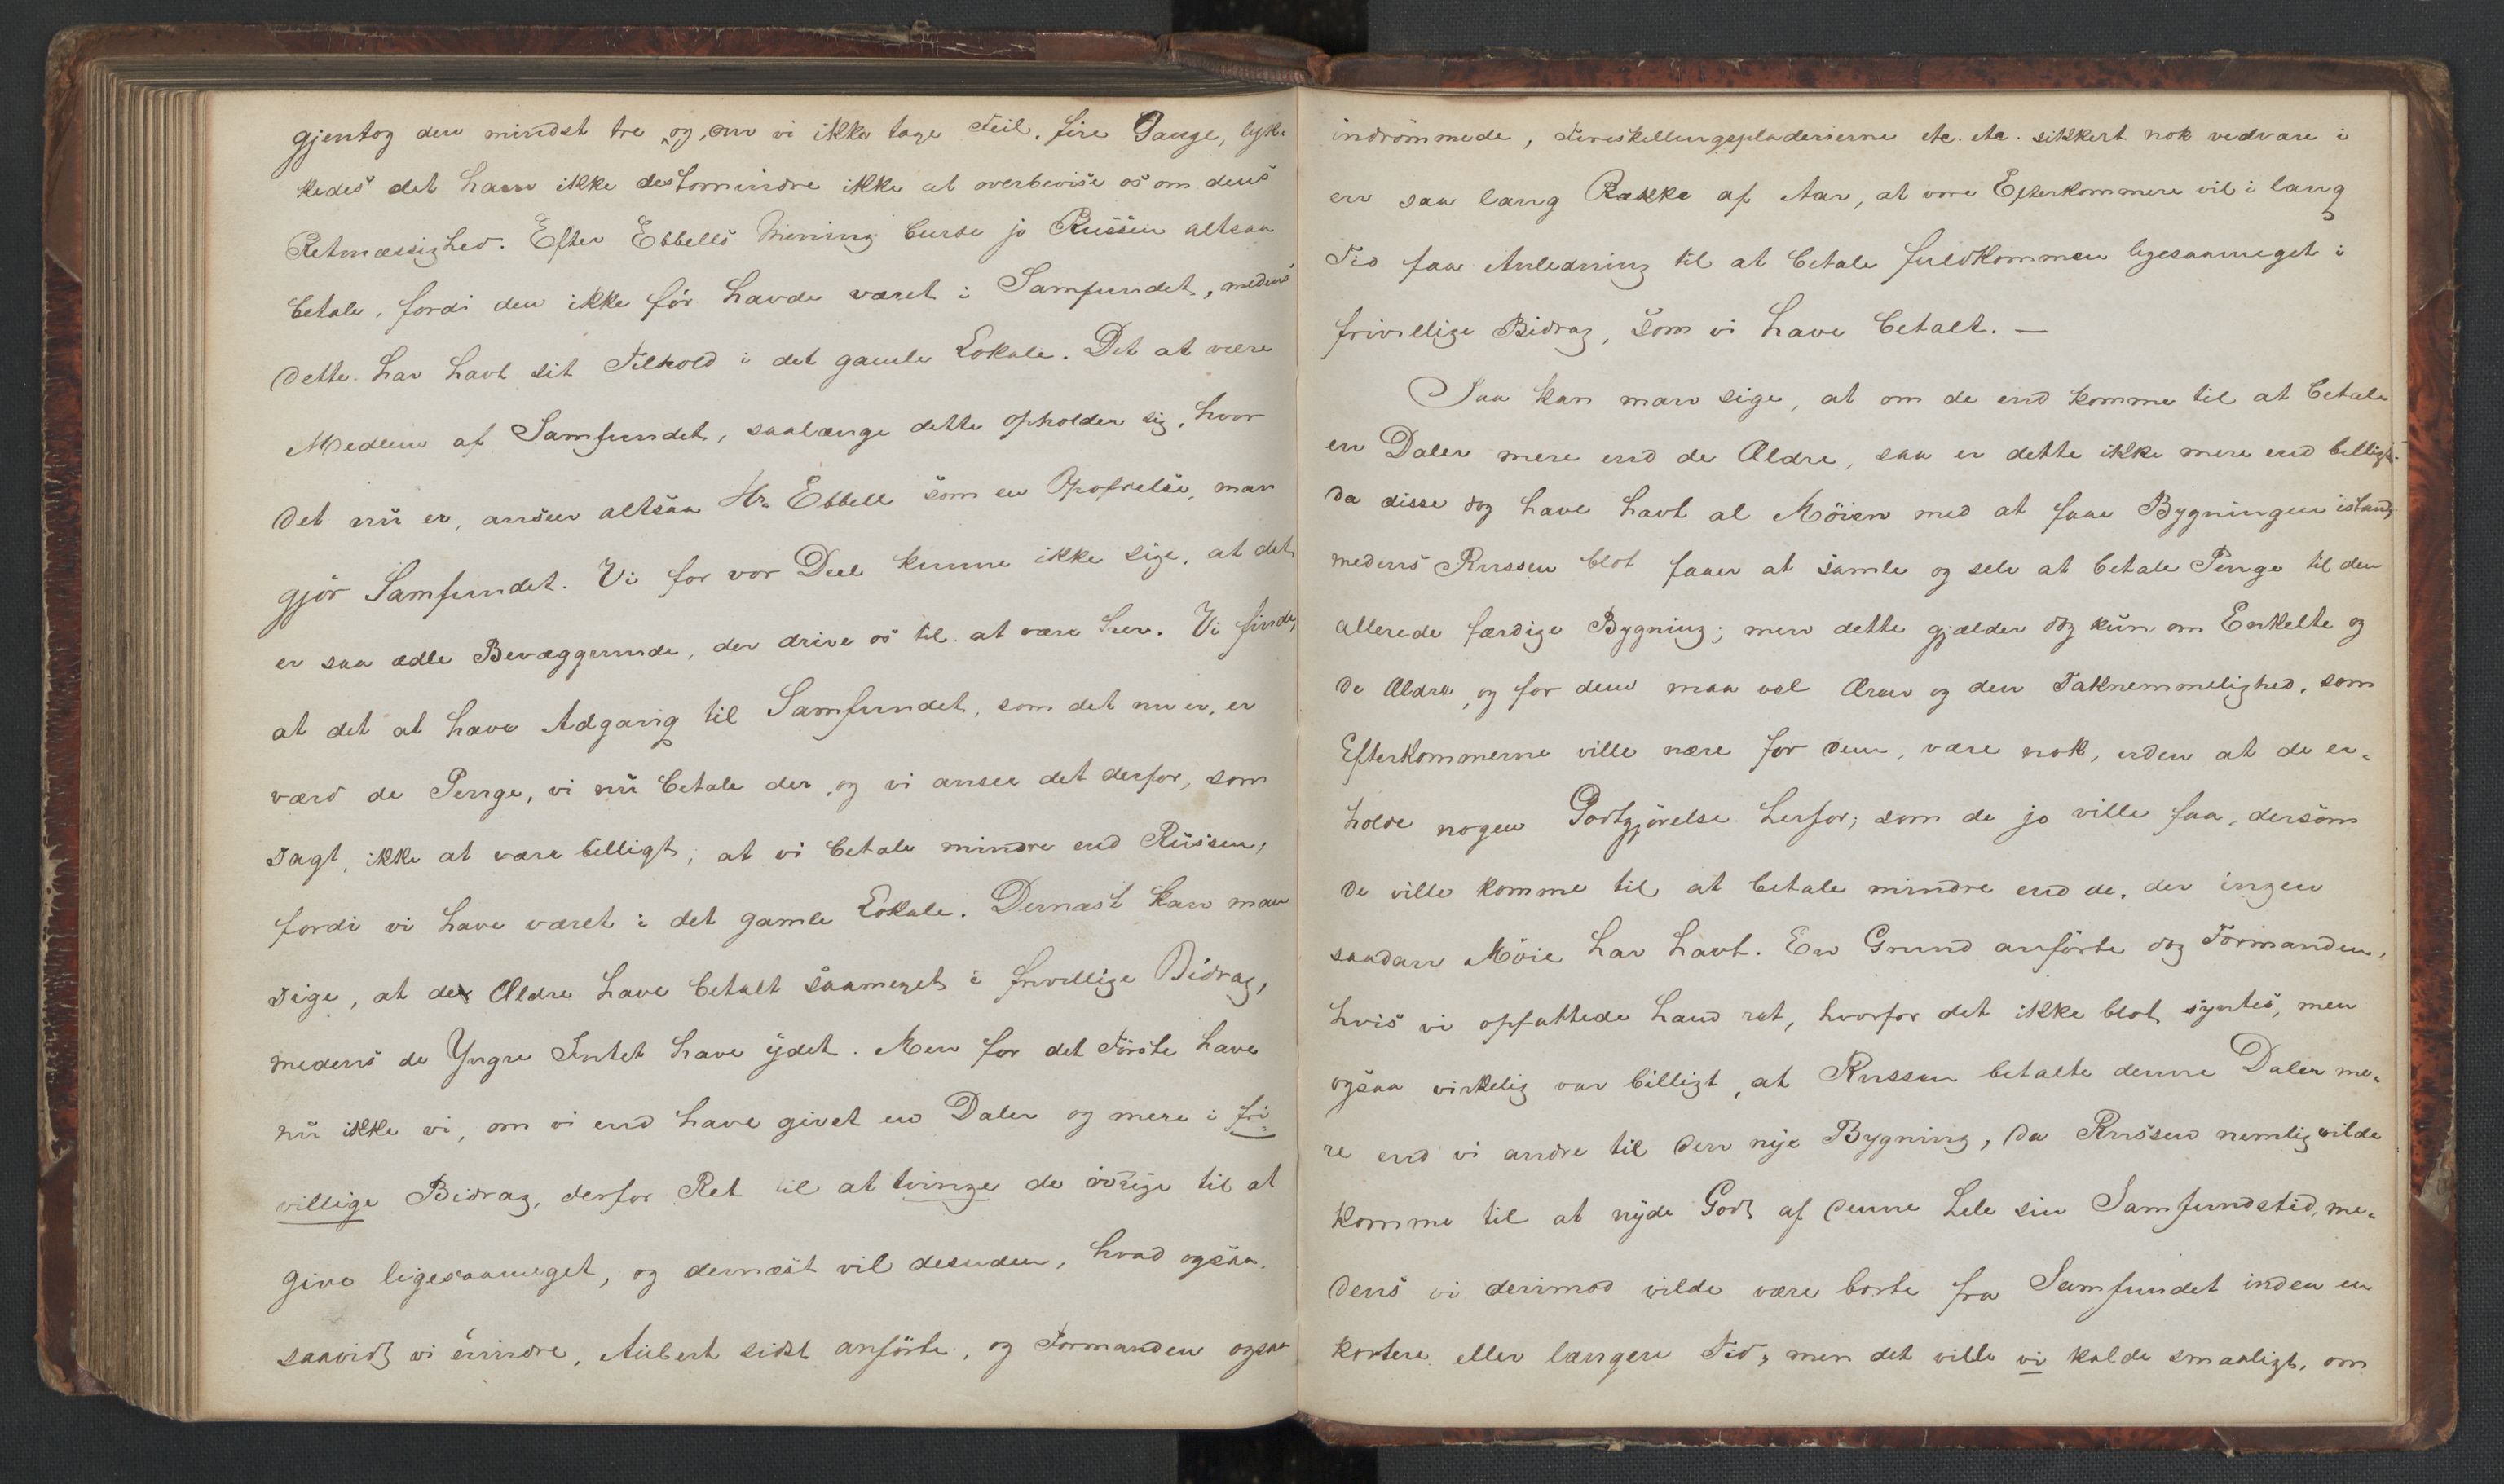 gjentog den mindst tre, og, om vi ikke tage Feil, fire Gange, lyk-
kedes det ham ikke destomindre ikke at overbevise os om dens
Retmæssighed. Efter Ebbells Mening burde jo Russen altsaa
betale, fordi den ikke för havde været i Samfundet, medens
dette har havt sit Tilhold i det gamle Lokale. Det at være
Medlem af Samfundet, saalænge dette opholder sig, hvor
det nu er, anseer altsaa Hr. Ebbell som en Opofrelse, man
gjör Samfundet. Vi for vor Deel kunne ikke sige, at det
er saa ædle Bevæggrunde, der drive os til at være her. Vi finde,
at det at have Adgang til Samfundet, som det nu er, er
værd de Penge, vi nu betale der, og vi ansee det derfor, som
sagt, ikke at være billigt, at vi betale mindre end Russen,
fordi vi have været i det gamle Lokale. Dernæst kan man
sige, at de Ældre have betalt saameget i frivillige Bidrag,
medens de Yngre Intet have ydet. Men for det Förste have
nu ikke vi, om vi end have givet en Daler og mere i fri-
villige Bidrag, derfor Ret til at tvinge de övrige til at
give ligesaameget, og dernæst vil desuden, hvad ogsaa,
saavidt vi erindre, Aubert sidst anförte, og Formanden ogsaa
indrömmede, Fireskillingspladerierne etc. etc. sikkert nok vedvare i
en saa lang Række af Aar, at vore Efterkommere vil i lang
Tid faa Anledning til at betale fuldkommen ligesaameget i
frivillige Bidrag, som vi have betalt. —
Saa kan man sige, at om de end komme til at betale
en Daler mere end de Ældre, saa er dette ikke mere end billigt,
da disse dog have havt al Möien med at faae Bygningen istand,
medens Russen blot faaer at samle og selv at betale Penge til den
allerede færdige Bygning; men dette gjælder dog kun om Enkelte og
de Ældre, og for dem maa vel Æren og den Taknemmelighed, som
Efterkommerne ville nære for dem, være nok, uden at de er-
holde nogen Godtgjörelse herfor, som de jo ville faa, dersom
de ville komme til at betale mindre end de, der ingen
saadan Möie har havt. En Grund anförte dog Formanden,
hvis vi opfattede ham ret, hvorfor det ikke blot syntes, men
ogsaa virkelig var billigt, at Russen betalte denne Daler me-
re end vi andre til den nye Bygning, da Russen nemlig vilde
komme til at nyde Godt af denne hele sin Samfundstid, me-
dens vi derimod vilde være borte fra Samfundet inden en
kortere eller længere Tid, men det ville vi kalde smaaligt, om